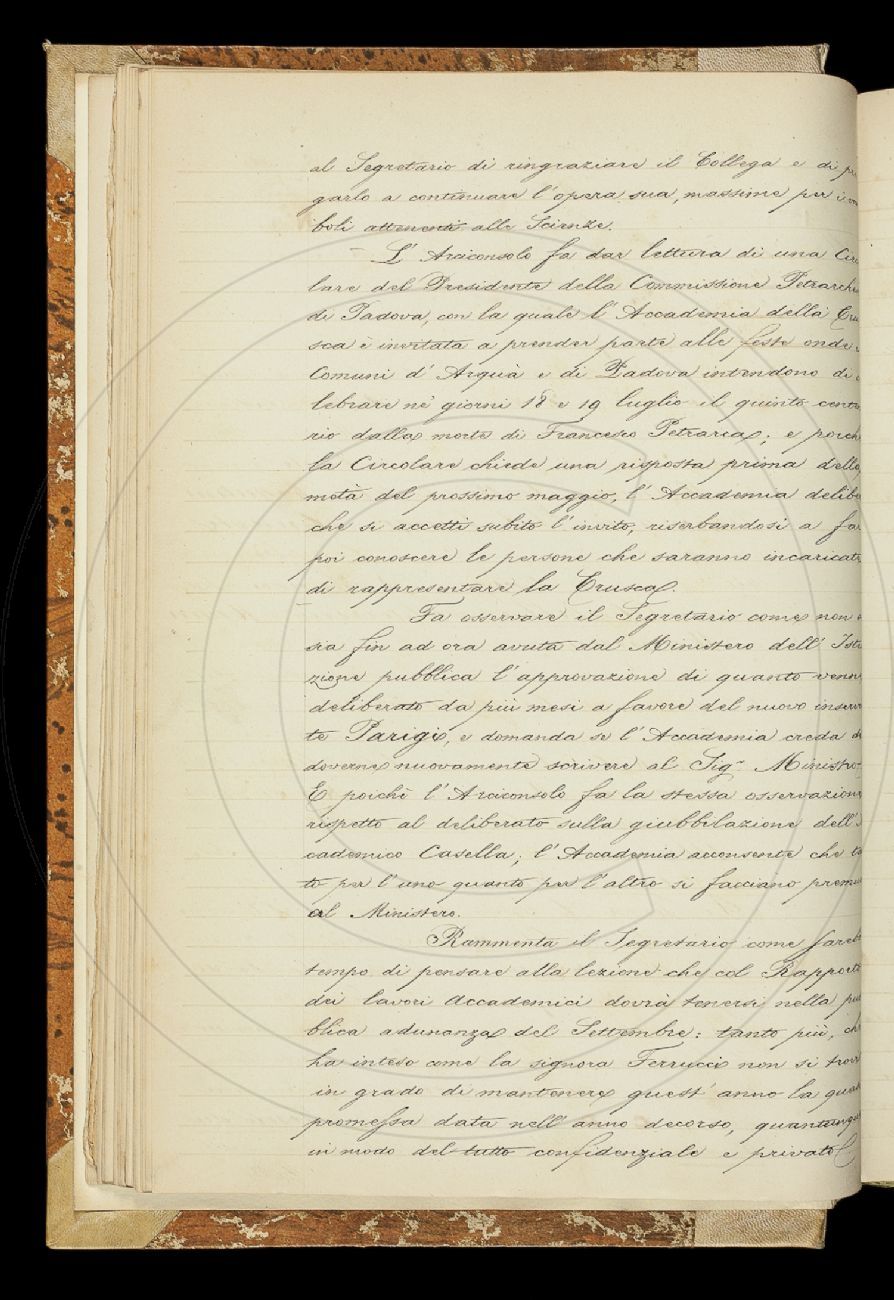 al Segretario di ringraziare il Collega e di pre
garlo a continuare l'opera sua, massime per i vo
boli attenenti alle Scienze.
L'Arciconsolo fa dar lettura di una Circ
lare del Presidente della Commissione Petrarche
di Padova, con la quale l'Accademia della Cru
sca è invitata a prender parte alle feste onde i
Comuni d'Arquà e di Padova intendono di c
lebrare ne' giorni 18 e 19 luglio il quinto cente
rio dalla morte di Francesco Petrarca; e poichè
la Circolare chiede una risposta prima della
metà del prossimo maggio, l'Accademia delibe
che si accetti subito l'invito, riserbandosi a far
poi conoscere le persone che saranno incaricate
di rappresentare la Crusca.
Fa osservare il Segretario come non s
sia fin ad ora avuta dal Ministero dell'Istr
zione pubblica l'approvazione di quanto venne
deliberato da più mesi a favore del nuovo inserv
te Parigi, e domanda se l'Accademia creda di
doverne nuovamente scrivere al Sig.r Ministro.
E poichè l'Arciconsolo fa la stessa osservazione
rispetto al deliberato sulla giubbilazione dell'A
cademico Casella; l'Accademia acconsente che ta
to per l'uno quanto per l'altro si facciano premur
al Ministero.
Rammenta il Segretario come farebb
tempo di pensare alla lezione che col Rapporto
dei lavori Accademici dovrà tenersi nella pub
blica adunanza del Settembre: tanto più, che
ha inteso come la signora Ferrucci non si trovi
in grado di mantenere quest'anno la quasi
promessa data nell'anno decorso, quantunque
in modo del tutto confidenziale e privato